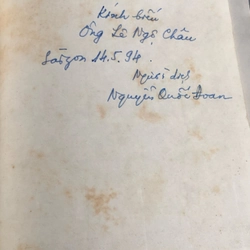 Kính biếu
Ông Lê Ngộ Châu
Saigon 14.5.94.
Người dịch
Nguyễn Quốc Đoan